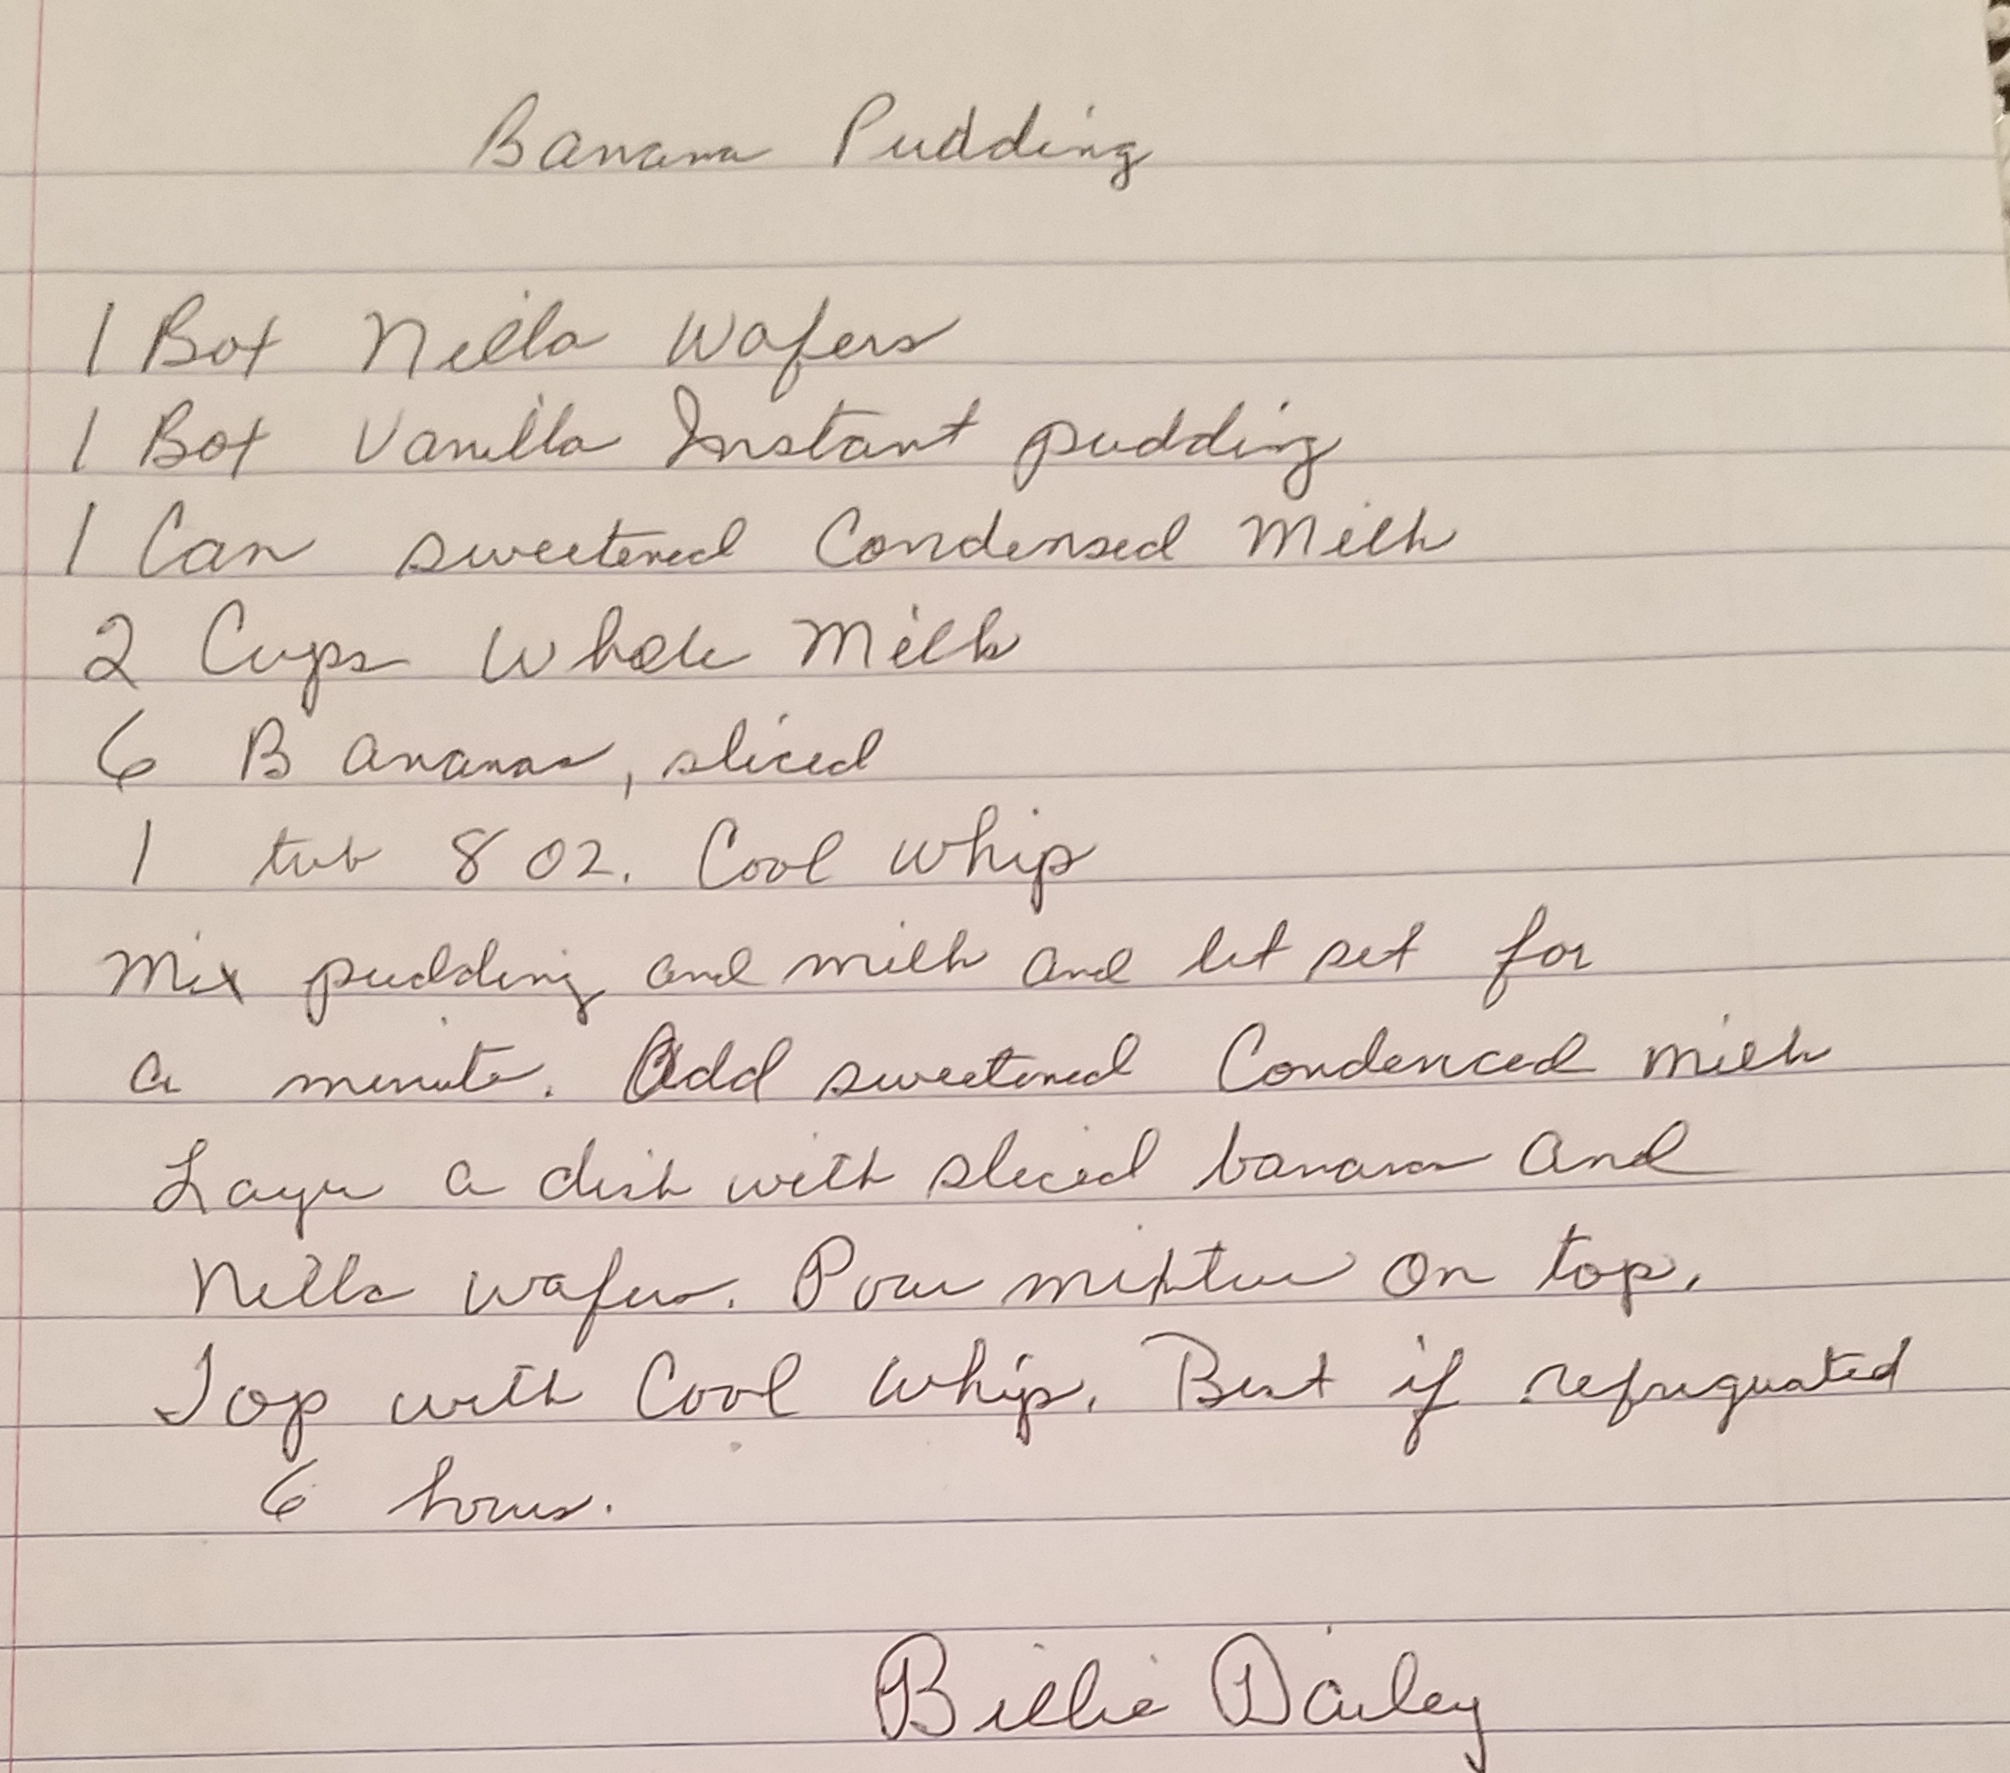 Banana Pudding
1 Box Nilla Wafers
1 Box Vanilla Instant pudding
1 Can sweetened Condensed Milk
2 Cups Whole Milk
6 Bananas, sliced
1 tub 8 oz. Cool Whip
Mix pudding and milk and let set for
a minute. Add sweetened Condenced milk
Layer a dish with sliced bananas and
Nilla wafers. Pour mixture on top.
Top with Cool Whip. Best if refrigerated
6 hours.
Billie Dailey